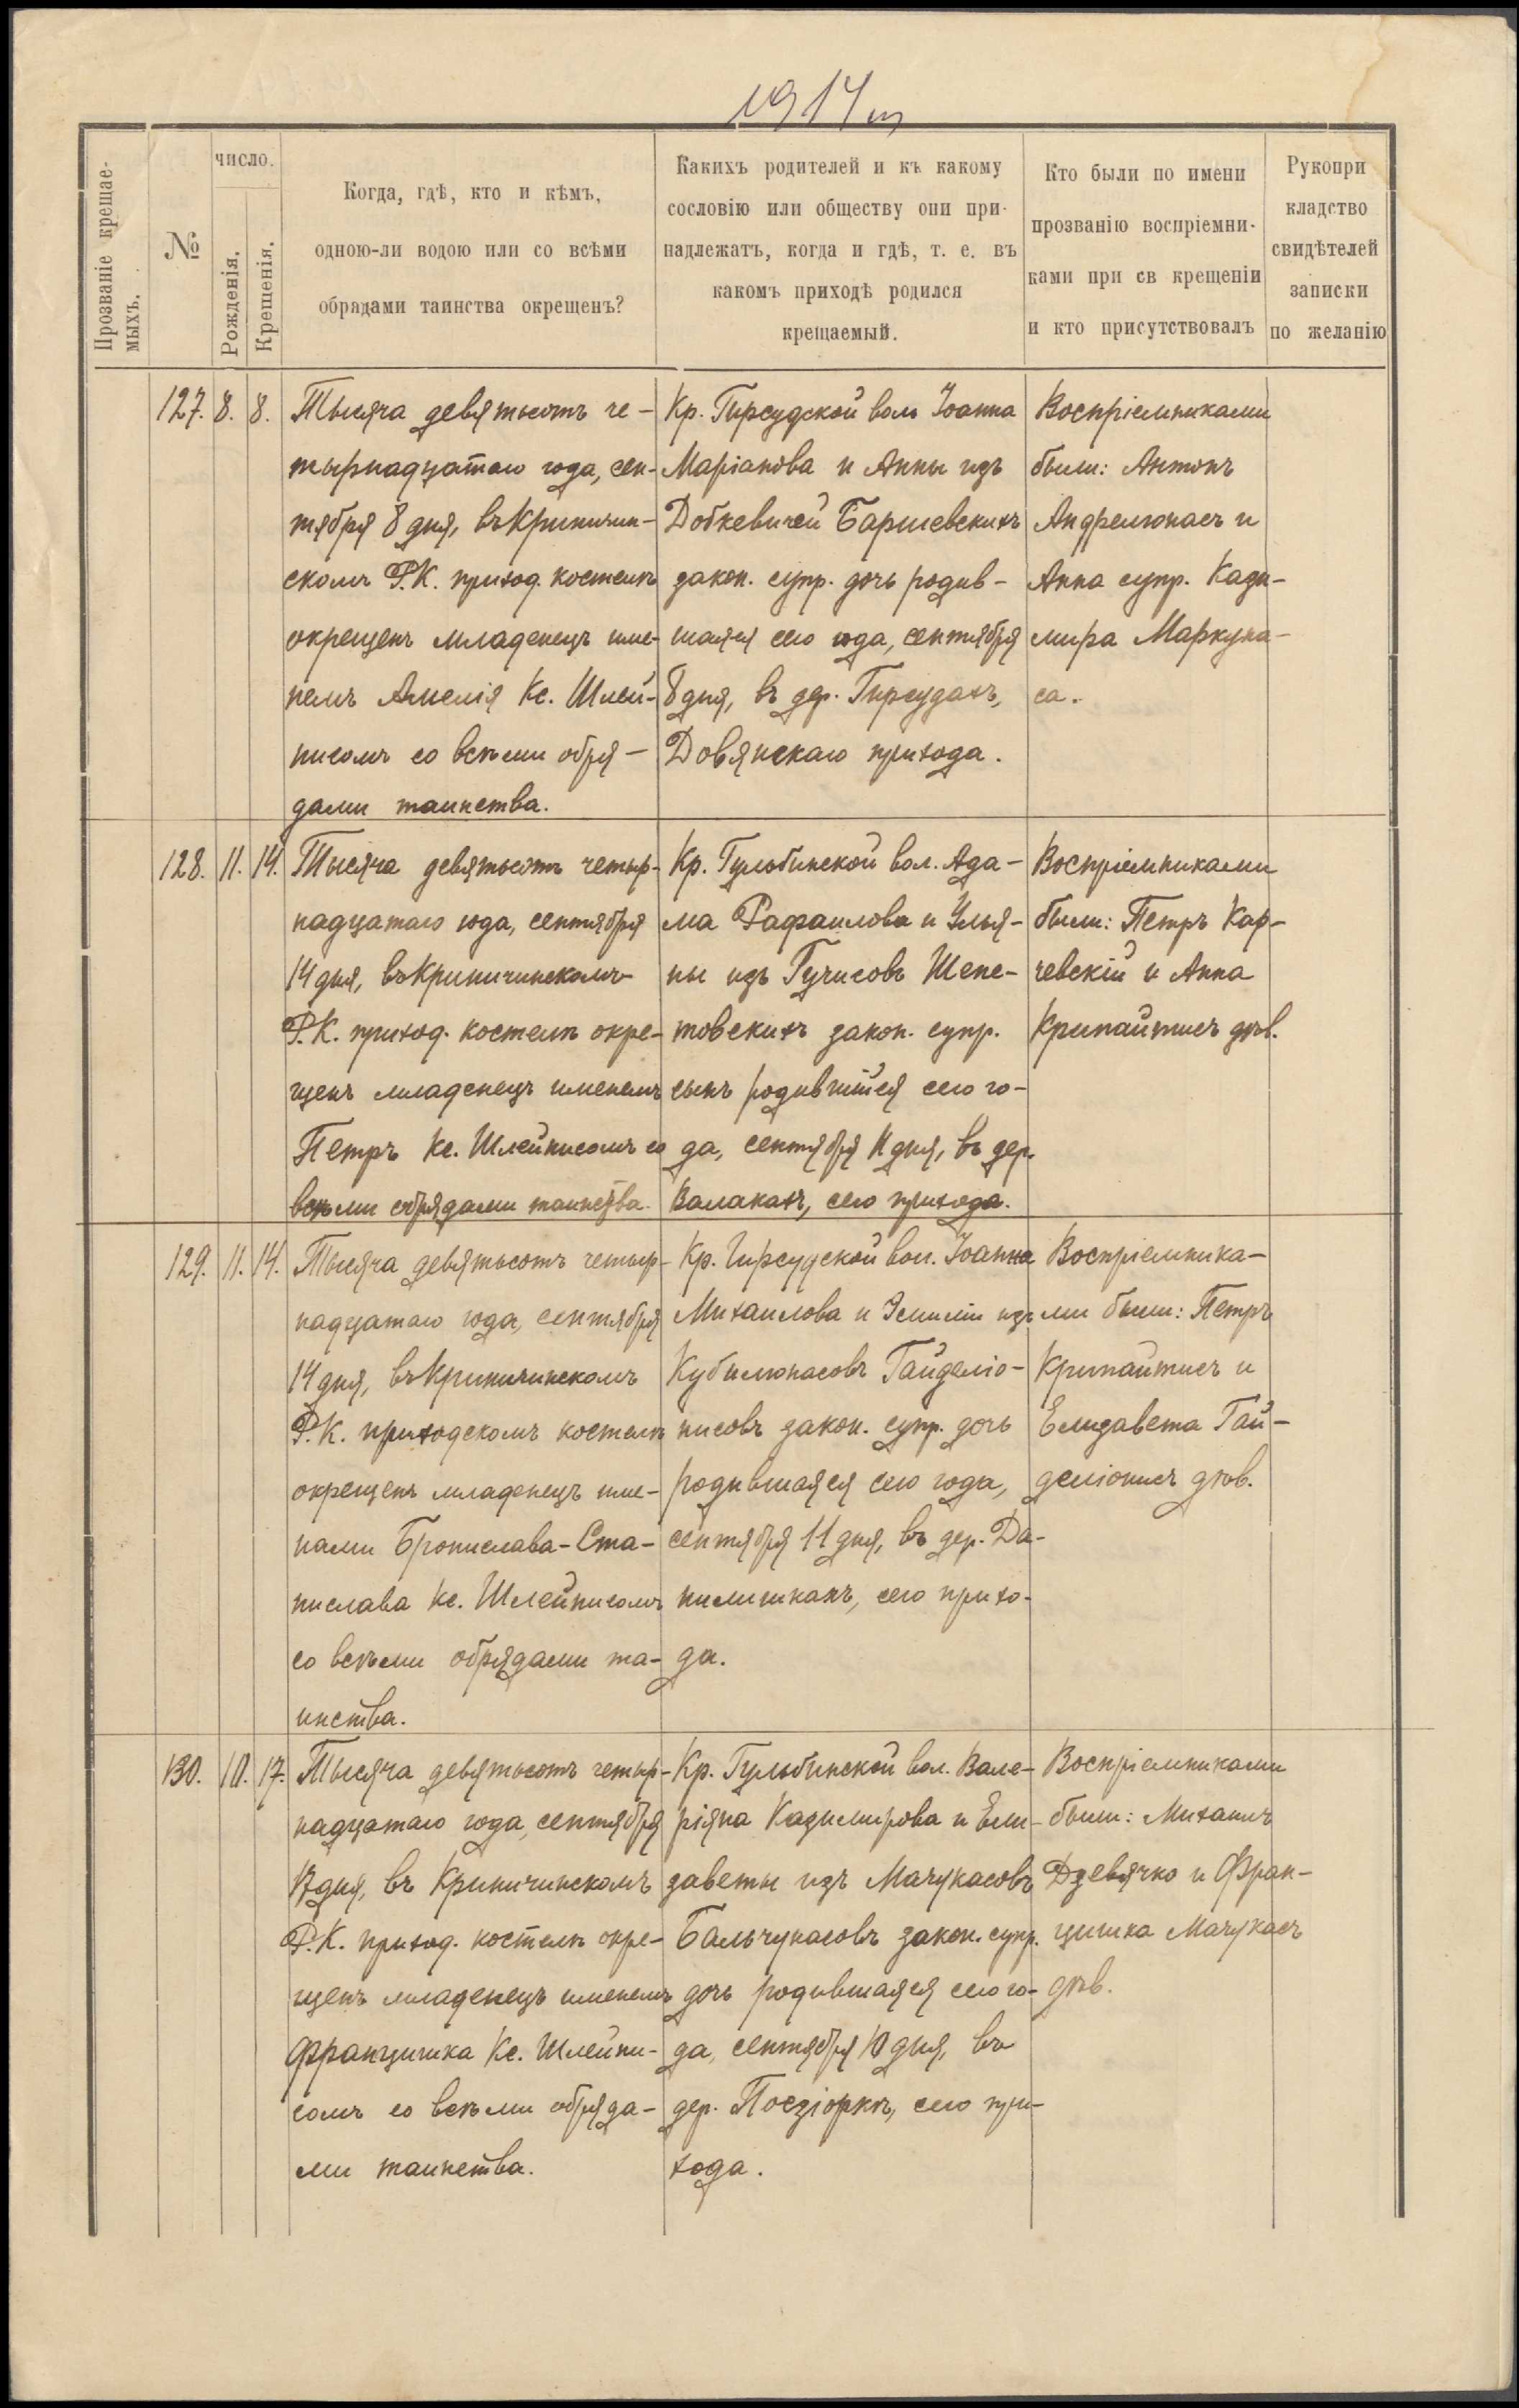 1914 г.
Прозваніе крещае-
мыхъ.
№
ЧИСЛО.
Рожденія.
Крещенія.
Когда, гдѣ, кто и кѣмъ,
одною-ли водою или со всѣми
обрядами таинства окрещенъ?
Какихъ родителей и къ какому
сословію или обществу они при-
надлежатъ, когда и гдѣ, т. е. въ
какомъ приходѣ родился
крещаемый.
Кто были по имени
прозванію воспріемни-
ками при св крещеніи
и кто присутствовалъ
Рукопри
кладство
свидѣтелей
записки
по желанію
127. 8. 8.
Тысяча девятьсотъ че-
тырнадцатаго года, сен-
тября 8 дня, въ Криничин-
скомъ Р.К. приход. костелѣ
окрещенъ младенецъ име-
немъ Амелія Кс. Шлей-
нисомъ со всѣми обря-
дами таинства.
Кр. Гирсудской вол. Іоанна
Маріанова и Анны изъ
Добкевичей Баршевскихъ
закон. супр. дочь родив-
шаяся сего года, сентября
8 дня, въ дер. Гирсудахъ,
Довянскаго прихода.
Воспріемниками
были: Антонъ
Андрелюнасъ и
Анна супр. Кази-
мира Маркуна-
са.
128. 11. 14.
Тысяча девятьсотъ четыр-
надцатаго года, сентября
14 дня, въ Криничинскомъ
Р.К. приход. костелѣ окре-
щенъ младенецъ именемъ
Петръ Кс. Шлейнисомъ со
всѣми обрядами таинства.
Кр. Гульбинской вол. Ада-
ма Рафаилова и Улья-
ны изъ Гучисовъ Шепе-
товскихъ закон. супр.
сынъ родившійся сего го-
да, сентября 11 дня, въ дер.
Валакахъ, сего прихода.
Воспріемниками
были: Петръ Кар-
чевскій и Анна
Крипайтисъ дѣв.
129. 11. 14.
Тысяча девятьсотъ четыр-
надцатаго года, сентября
14 дня, въ Криничинскомъ
Р.К. приходскомъ костелѣ
окрещенъ младенецъ име-
нами Бронислава-Ста-
нислава Кс. Шлейнисомъ
со всѣми обрядами та-
инства.
Кр. Гирсудской вол. Іоанна
Михаилова и Эмиліи изъ
Кубилюнасовъ Гайделіо-
нисовъ закон. супр. дочь
родившаяся сего года,
сентября 11 дня, въ дер. Да-
нилишкахъ, сего прихо-
да.
Воспріемника-
ми были: Петръ
Крипайтисъ и
Елизавета Гай-
деліонисъ дѣв.
130. 10. 17.
Тысяча девятьсотъ четыр-
надцатаго года, сентября
17 дня, въ Криничинскомъ
Р.К. приход. костелѣ окре-
щенъ младенецъ именемъ
Францишка Кс. Шлейни-
сомъ со всѣми обряда-
ми таинства.
Кр. Гульбинской вол. Вале-
ріяна Казимирова и Ели-
заветы изъ Мачукасовъ
Бальчунасовъ закон. супр.
дочь родившаяся сего го-
да, сентября 10 дня, въ
дер. Поезіоркѣ, сего при-
хода.
Воспріемниками
были: Михаилъ
Дзевячко и Фран-
цишка Мачукасъ
дѣв.